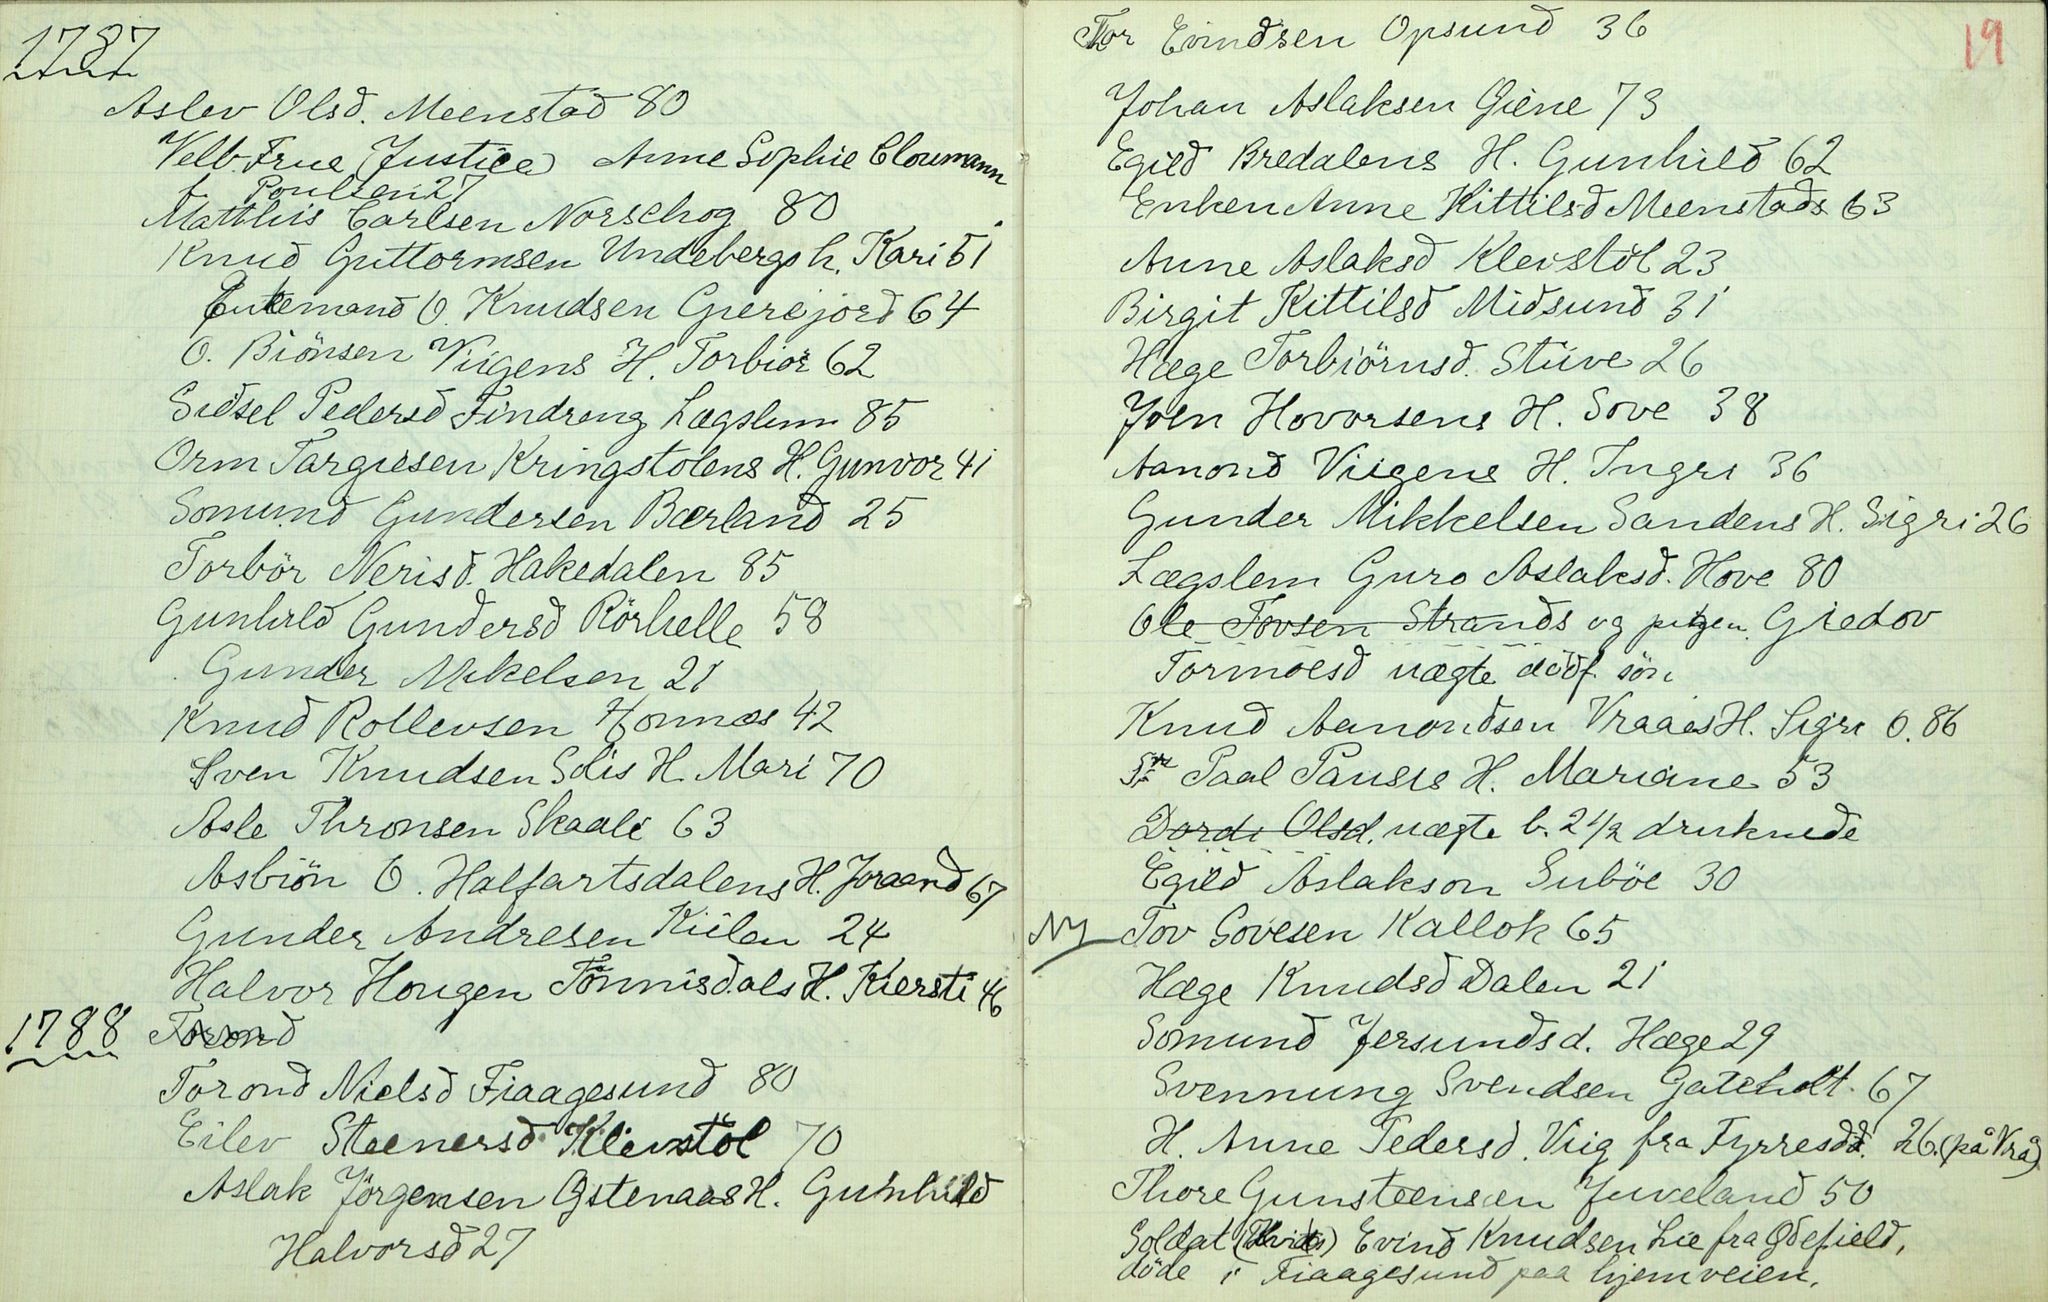 1787
Aslev Olsd. Meenstad 80
Velb. Frue (Justice) Anne Sophie Cloumann
f. Poulsen 27
Matthis Carlsen Norschog 80
Knud Guttormsen Undebergs h. Kari 51
Enkemand O. Knudsen Gierejord 64
O. Biönsen Viigens H. Torbiör 62
Sidsel Pedersd Findreng Lægslem 85
Orm Targiesen Kringstolens H. Gunvor 41
Somund Gundersen Bærland 25
Torbör Nerisd. Hakedalen 85
Gunhild Gundersd Rörhelle 58
Gunder Mikelsen 21
Knud Rollevsen Honnæs 42
Sven Knudsen Solis H. Mari 70
Asle Thronsen Skaali 63
Asbiön O. Halfartsdalens H. Joraand 67
Gunder Andresen Kiilen 24
Halvor Hougen Tönnisdals H. Kiersti 46
1788 Torond
Torond Nielsd Fiaagesund 80
Eilev Steenersd. Klevstöl 70
Aslak Jörgensen Østenaas H. Gunhild
Halvorsd 27
19
Tor Evindsen Opsund 36
Johan Aslaksen Giene 73
Egild Bredalens H. Gunhild 62
Enken Anne Kittilsd Meenstads 63
Anne Aslaksd Klevstöl 23
Birgit Kittilsd Midsund 31
Hæge Torbiörnsd. Stüve 26
Joen Hovorsens H. Sove 38
Aanond Viigens H. Ingri 36
Gunder Mikkelsen Sandens H. Sigri 26
Lægslem Guro Aslaksd. Hove 80
Ole Tovsen Strands og pigen Giedov
Tormoesd uægte dödf. sön
Knud Aanondsen Vraaes H. Sigri O. 86
Sr Paal Pauses H. Mariane 53
Dordi Olsd. uægte b. 2 1/2 druknede
Egild Aslakson Suböe 30
NY Tov Govesen Kallok 65
Hæge Knudsd Dalen 21
Somund Jersundsd. Hæge 29
Svennung Svendsen Gateholt 67
H. Anne Pedersd. Viig fra Fyrresdd. 26. (på Vrå)
Thore Gunsteensen Juveland 50
Soldat Evind Knudsen Lie fra Ødefield,
döde i Fiaagesund paa hjemveien.